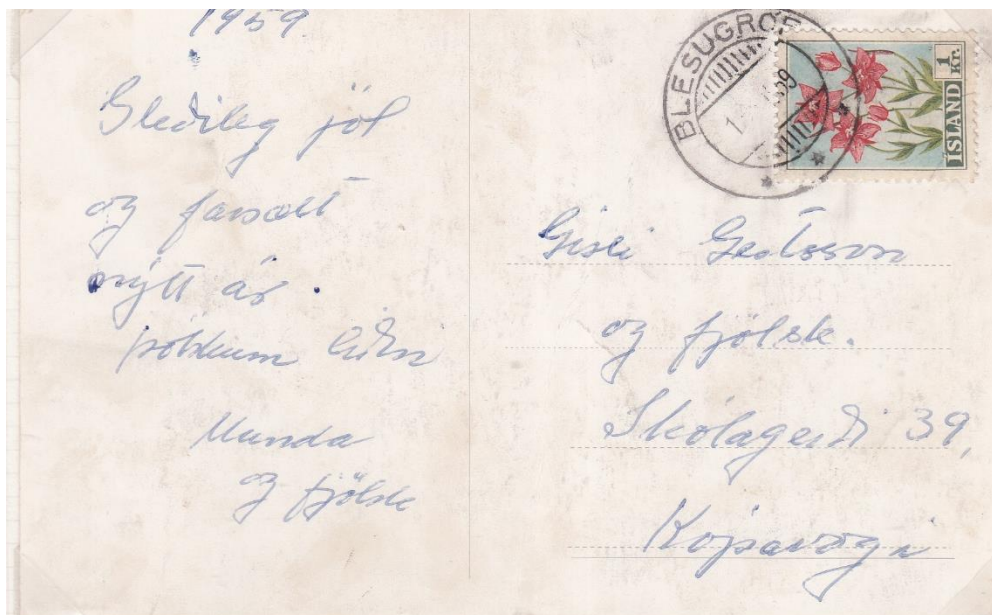 1959.
Gleðileg jól
og farsælt
nýtt ár.
þökkum liðin
Munda
og fjölsk
BLESUGRÓF
1 Kr.
ÍSLAND
Gísli Gestsson
og fjölsk.
Skólagerði 39,
Kópavogi